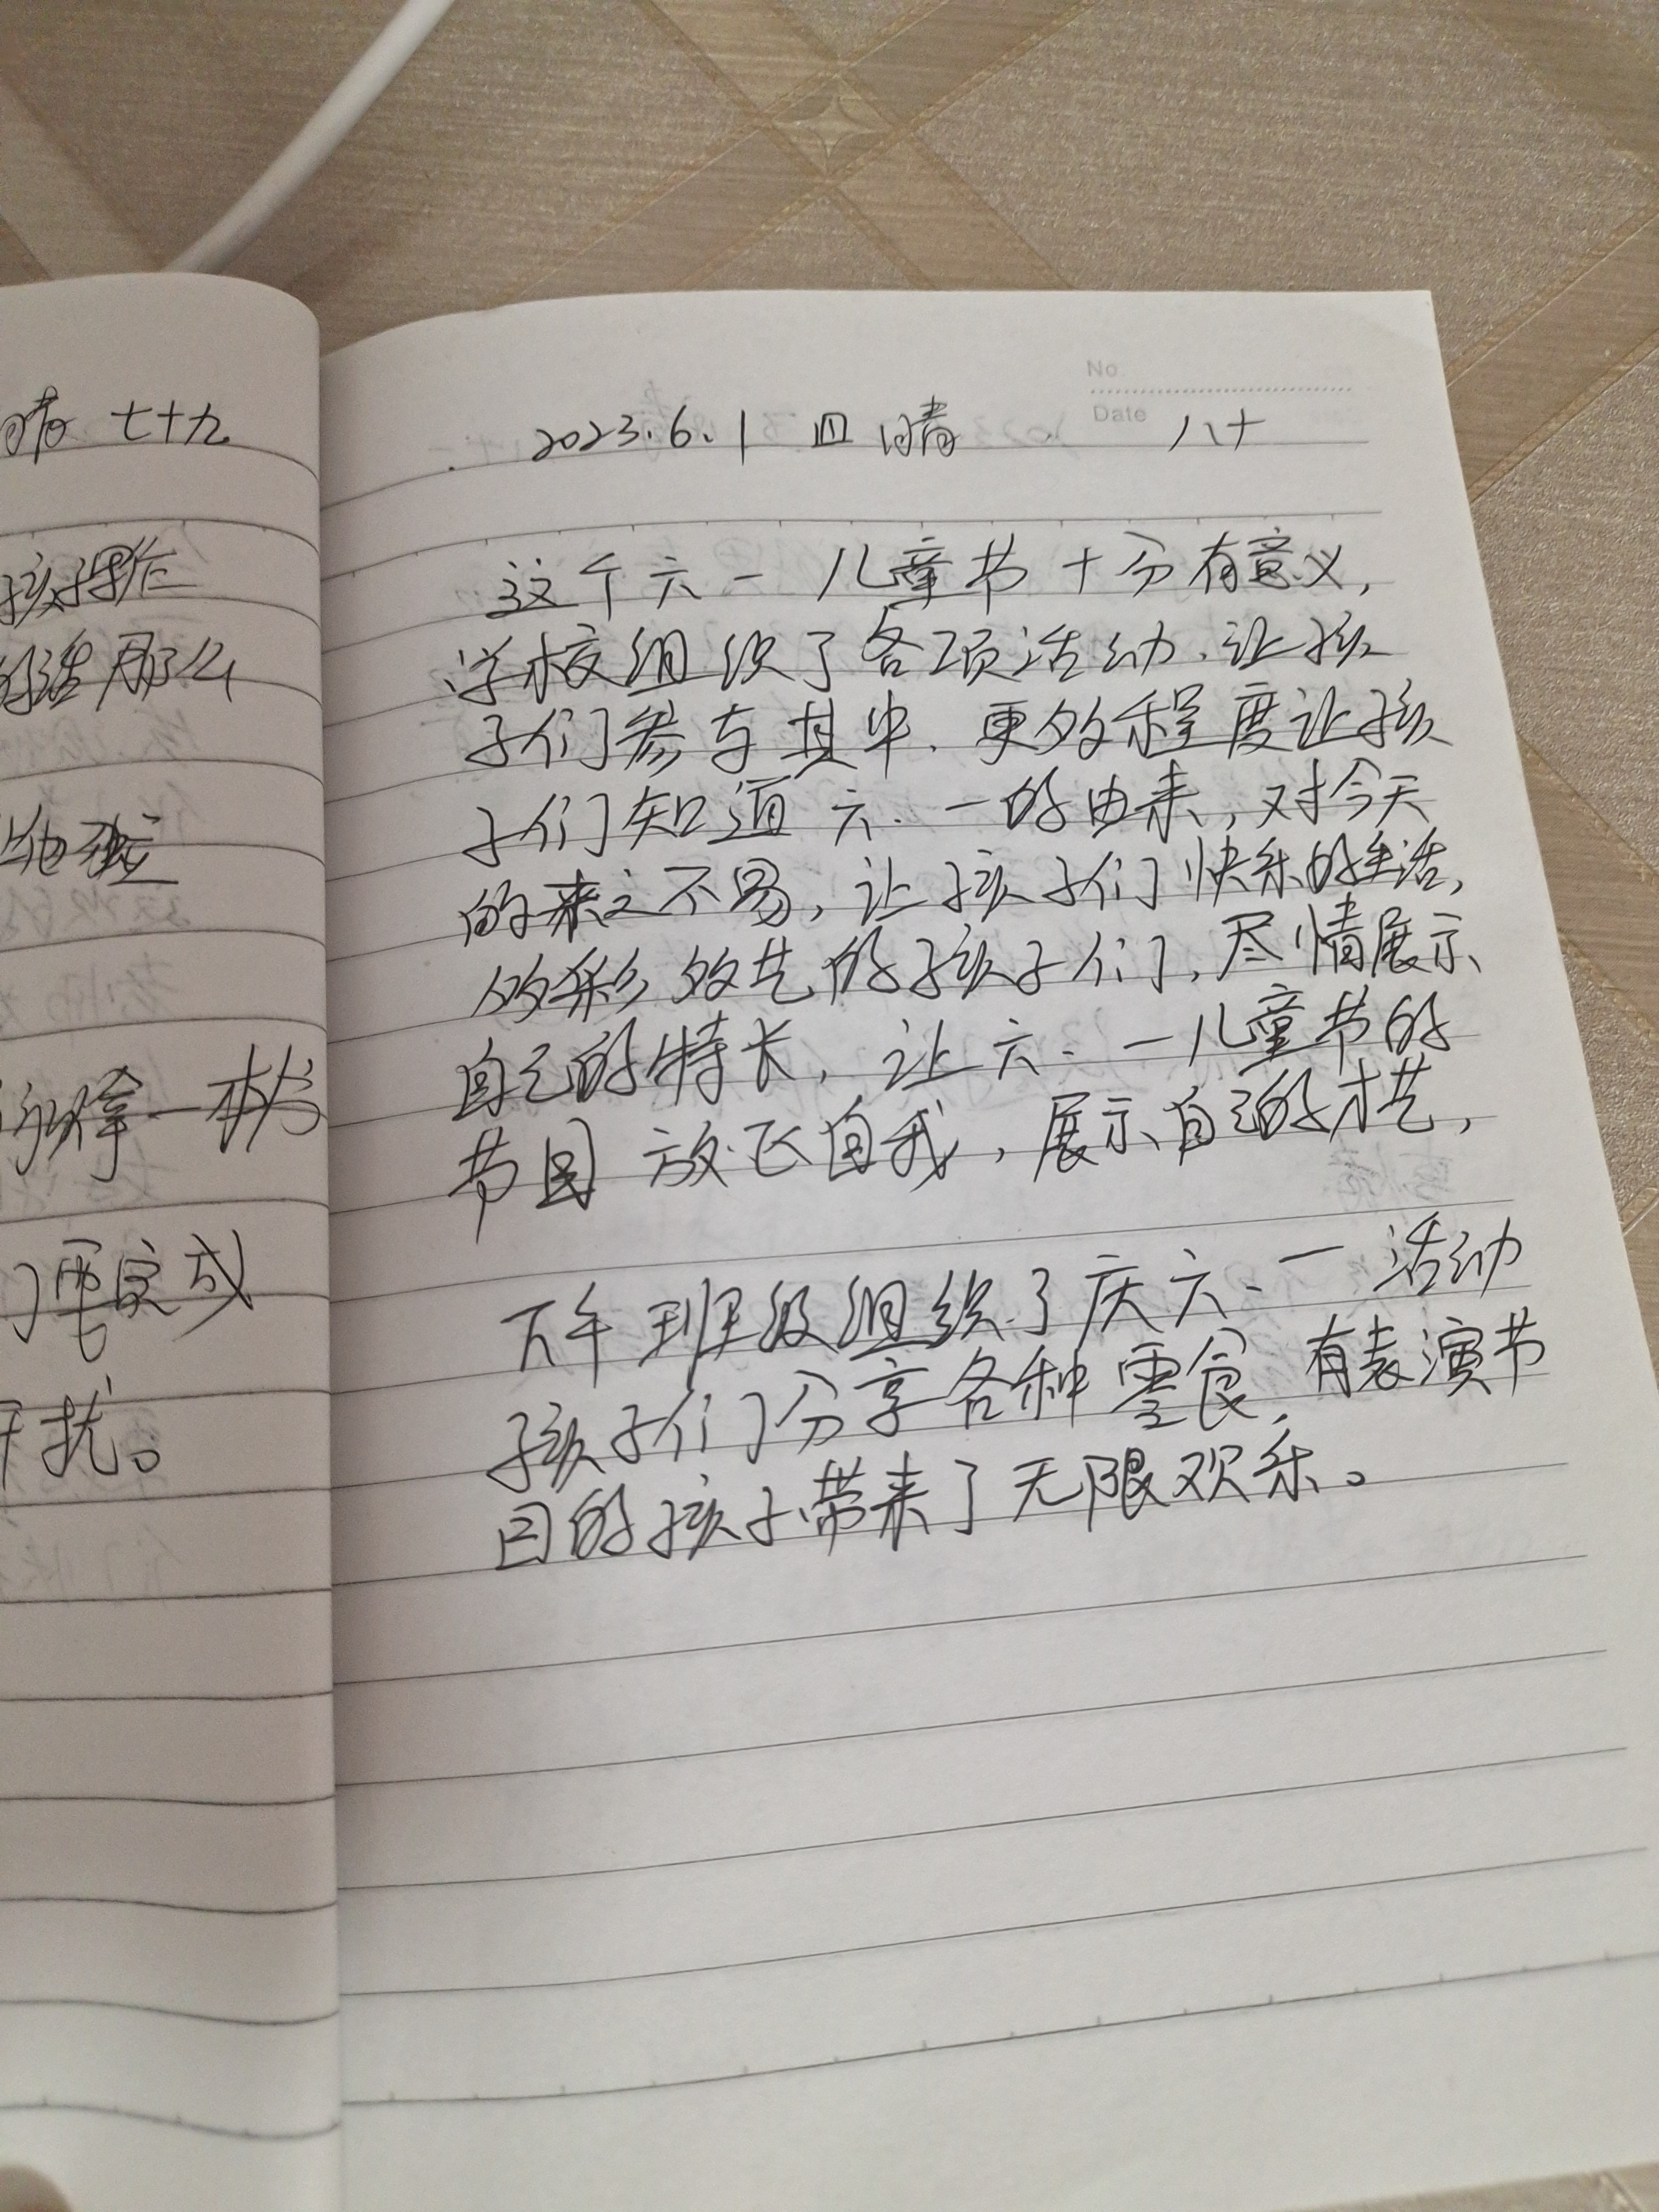 晴 七十九
那么
拿一本书
要完成
干扰。
No.
Date
2023.6.1 四 晴 八十
这个六一儿童节十分有意义,
学校组织了各项活动、让孩
子们参与其中、更多程度让孩
子们知道六、一的由来,对今天
的来之不易,让孩子们快乐的生活,
多彩多艺的孩子们,尽情展示
自己的特长,让六、一儿童节的
节目放飞自我,展示自己的才艺,
下午班级组织了庆六、一活动
孩子们分享各种零食,有表演节
目的孩子带来了无限欢乐。